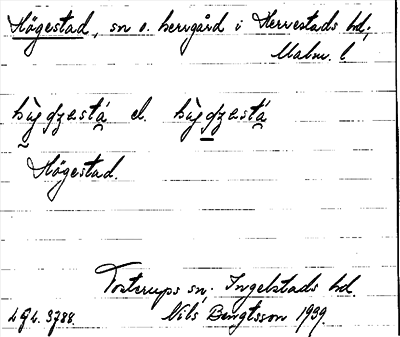 Högestad, sn o. herrgård i Herrestads hd,
Malm. l
el.
Högestad.
Tosterups sn, Ingelstads hd.
Nils Bengtsson 1939.
3788.